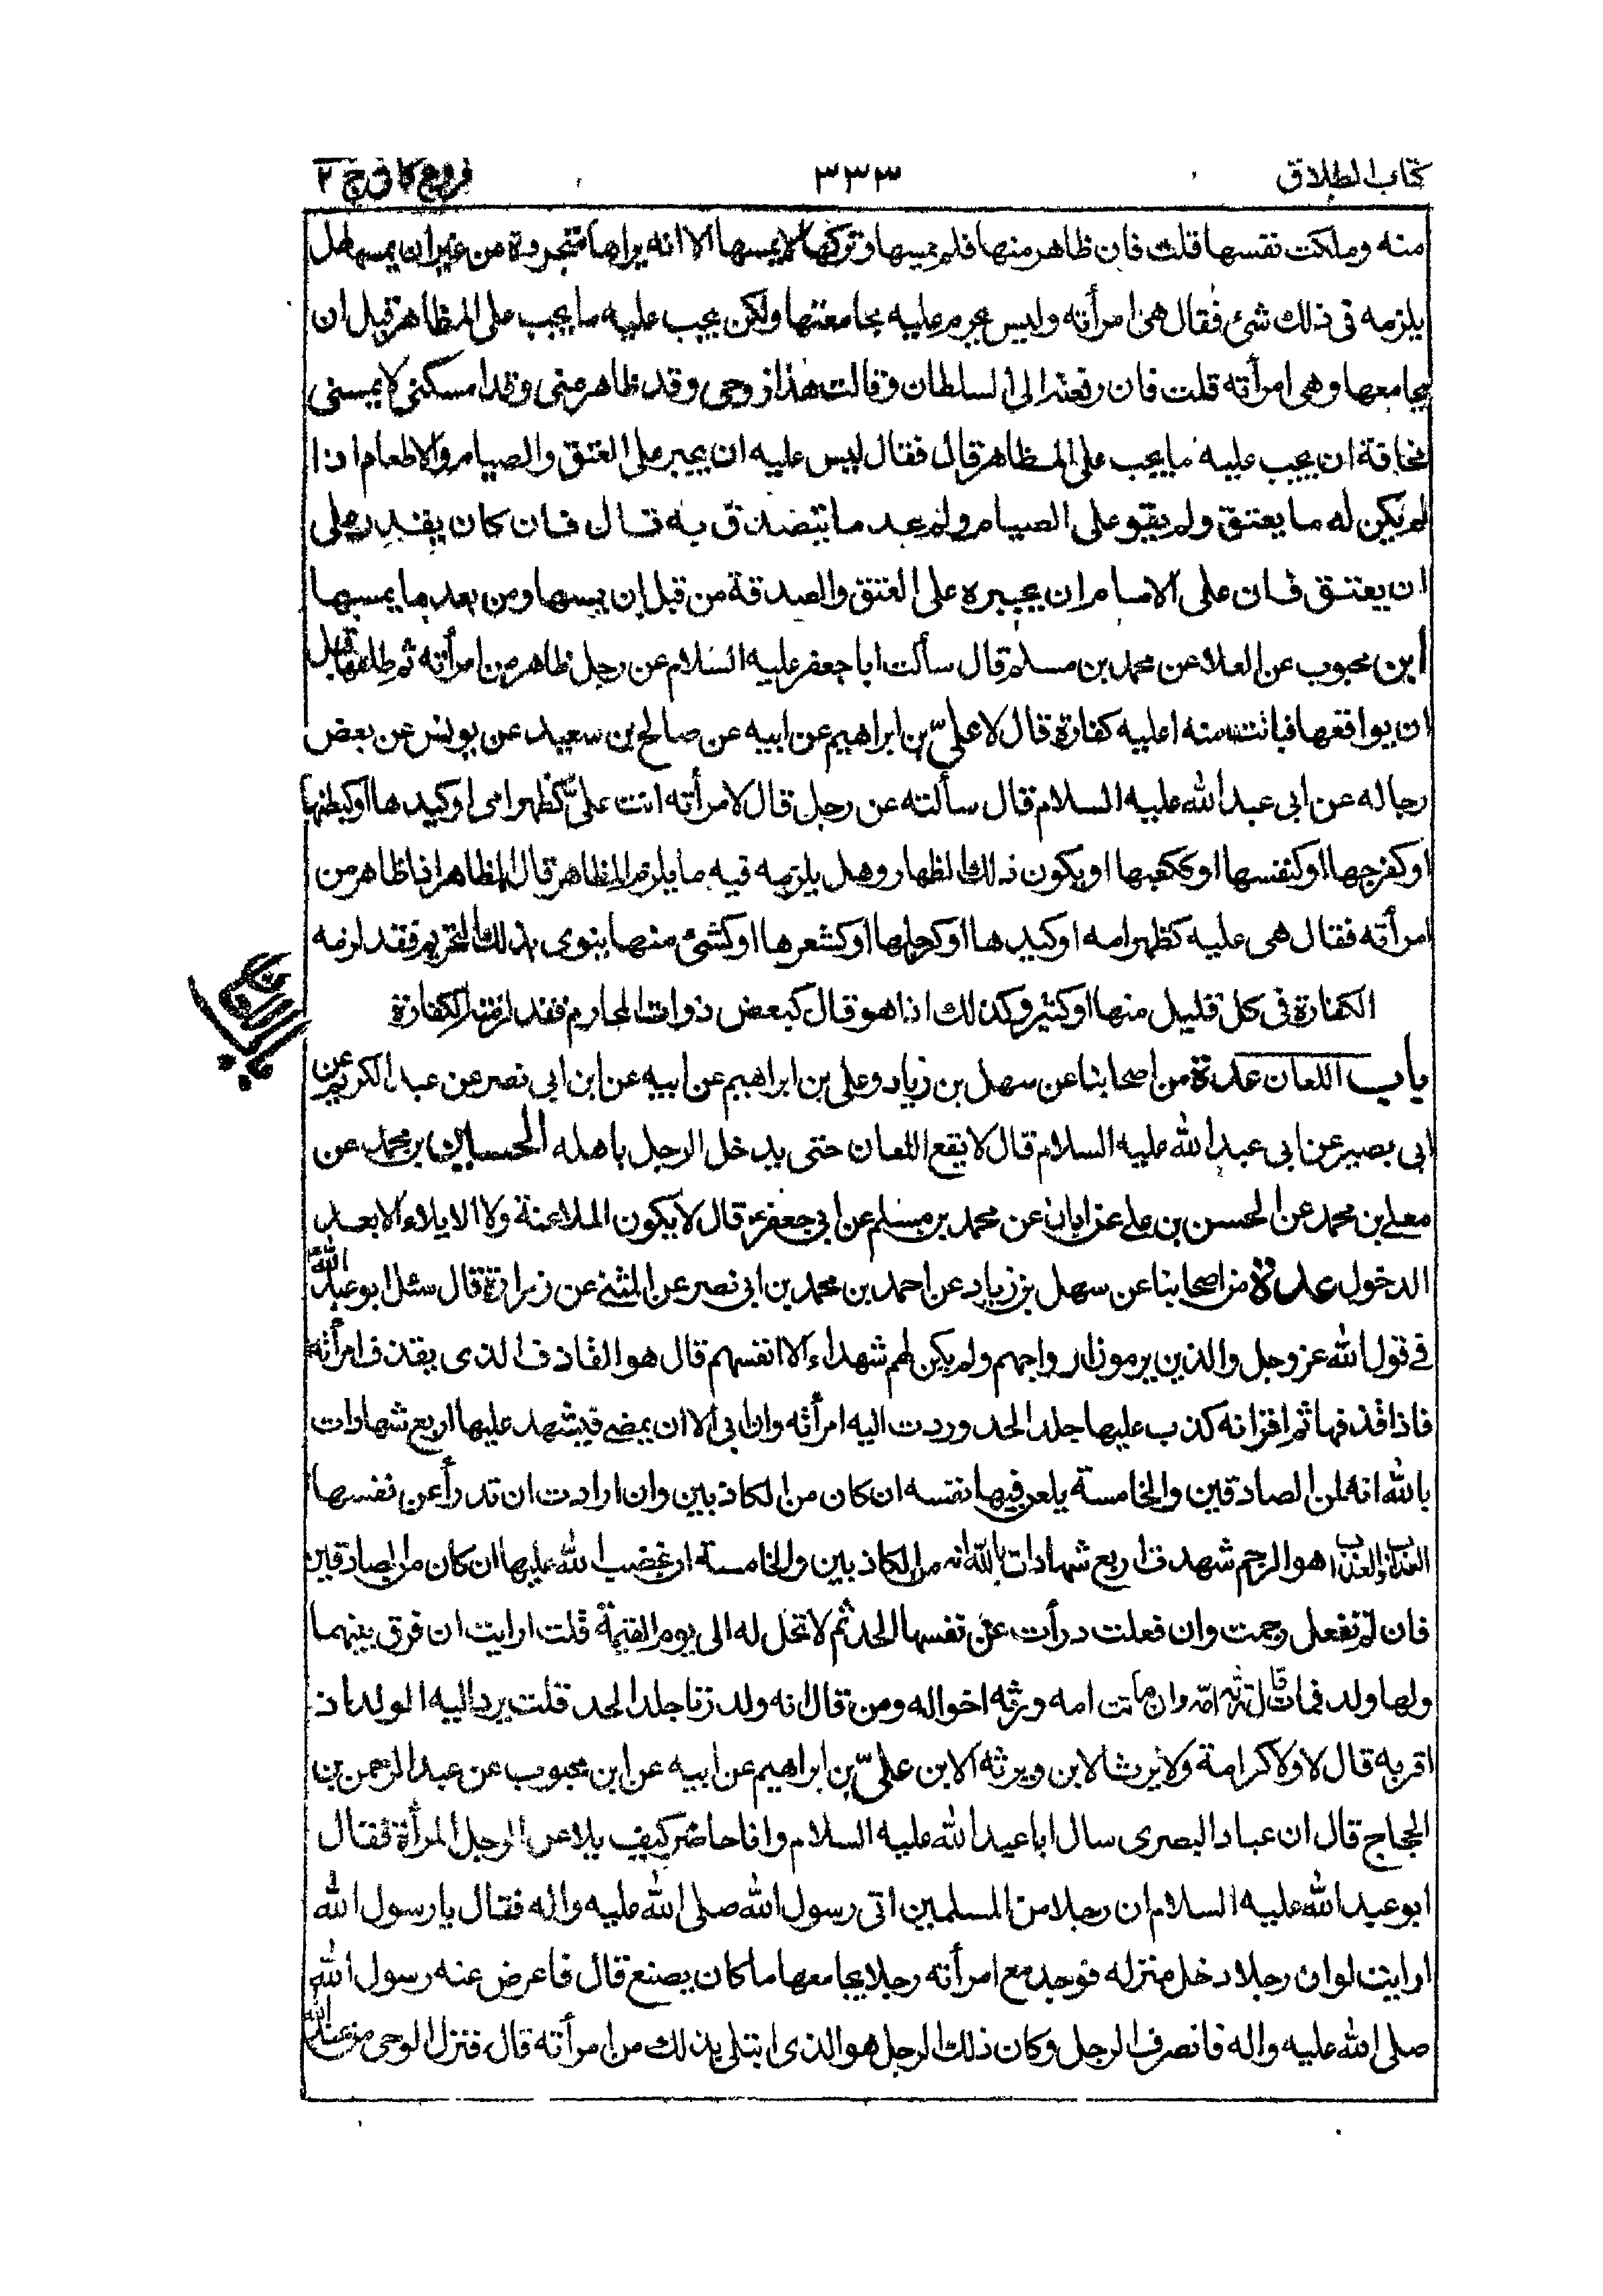 كتاب الطلاق ٣٣٣ فروع كافى ج ٢
منه وملكت نفسها قلت فان ظاهر منها فلم يمسها وتركها لا يمسها الا انه يراها متجردة من غير ان يمسها هل
يلزمه فى ذلك شئ فقال هى امرأته وليس بمحرم عليه مجامعتها ولكن يجب عليه ما يجب على المظاهر قبل ان
يجامعها وهى امرأته قلت فان رفعته الى السلطان وقالت هذا زوجى وقد ظاهر منى وقد امسكنى لا يمسنى
مخافة ان يجب عليه ما يجب على المظاهر قال فقال ليس عليه ان يجبر على العتق والصيام والاطعام اذا
لم يكن له ما يعتق ولم يقو على الصيام ولم يجد ما يتصدق به قال فان كان يقدر على
ان يعتق فان على الامام ان يجبره على العتق والصدقة من قبل ان يمسها ومن بعد ما يمسها
ابن محبوب عن العلا عن محمد بن مسلم قال سألت ابا جعفر عليه السلام عن رجل ظاهر من امرأته ثم طلقها قبل
ان يواقعها فبانت منه اعليه كفارة قال لا علىّ بن ابراهيم عن ابيه عن صالح بن سعيد عن يونس عن بعض
رجاله عن ابى عبد الله عليه السلام قال سألته عن رجل قال لامرأته انت علىّ كظهر امى اوكيدها اوكبطنها
اوكفرجها اوكنفسها اوككعبها او يكون ذلك الظهار وهل يلزمه فيه ما يلزم المظاهر قال المظاهر اذا ظاهر من
امرأته فقال هى عليه كظهر امه اوكيدها اوكرجلها اوكشعرها اوكشئ منها ينوى بذلك التحريم فقد لزمه
الكفارة فى كل قليل منها اوكثير وكذلك اذا هو قال كبعض ذوات المحارم فقد لزمته الكفارة
باب اللعان
باب اللعان عدة من اصحابنا عن سهل بن زياد وعلى بن ابراهيم عن ابيه عن ابن ابى نصر عن عبد الكريم عن
ابى بصير عن ابى عبد الله عليه السلام قال لا يقع اللعان حتى يدخل الرجل باهله الحسين بن محمد عن
معلى بن محمد عن الحسن بن على عن ابان عن محمد بن مسلم عن ابى جعفر ع قال لا يكون الملاعنة ولا الايلاء الا بعد
الدخول عدة من اصحابنا عن سهل بن زياد عن احمد بن محمد بن ابى نصر عن المثنى عن زرارة قال سئل ابو عبد الله ع
فى قول الله عز وجل والذين يرمون ازواجهم ولم يكن لهم شهداء الا انفسهم قال هو القاذف الذى يقذف امرأته
فاذا قذفها ثم اقر انه كذب عليها جلد الحد وردت اليه امرأته وان ابى الا ان يمضى فيشهد عليها اربع شهادات
بالله انه لمن الصادقين والخامسة يلعن فيها نفسه ان كان من الكاذبين وان ارادت ان تدرأ عن نفسها
العذاب والعذاب هو الرجم شهدت اربع شهادات بالله انه من الكاذبين والخامسة ان غضب الله عليها ان كان من الصادقين
فان لم تفعل رجمت وان فعلت درأت عن نفسها الحد ثم لا تحل له الى يوم القيمة قلت ارايت ان فرق بينهما
ولها ولد فمات قال ترثه امه وان ماتت امه ورثه اخواله ومن قال انه ولد زنا جلد الحد قلت يرد اليه الولد اذ
اقر به قال لا ولا كرامة ولا يرث الابن ويرثه الابن علىّ بن ابراهيم عن ابيه عن ابن محبوب عن عبد الرحمن بن
الحجاج قال ان عباد البصرى سال ابا عبد الله عليه السلام وانا حاضر كيف يلاعن الرجل المرأة فقال
ابو عبد الله عليه السلام ان رجلا من المسلمين اتى رسول الله صلى الله عليه واله فقال يا رسول الله
ارايت لو ان رجلا دخل منزله فوجد مع امرأته رجلا يجامعها ما كان يصنع قال فاعرض عنه رسول الله
صلى الله عليه واله فانصرف الرجل وكان ذلك الرجل هو الذى ابتلى بذلك من امرأته قال فنزل الوحى من عند الله